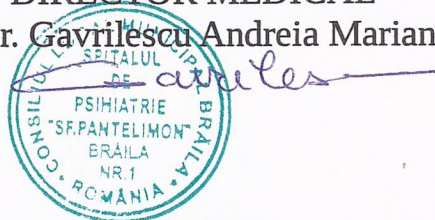 DIRECTOR MEDICAL
r. Gavrilescu Andreia Marian
CONSILIUL
BRĂILA
SPITALUL
DE
PSIHIATRIE
"SF.PANTELIMON"
BRĂILA
NR.1
ROMÂNIA